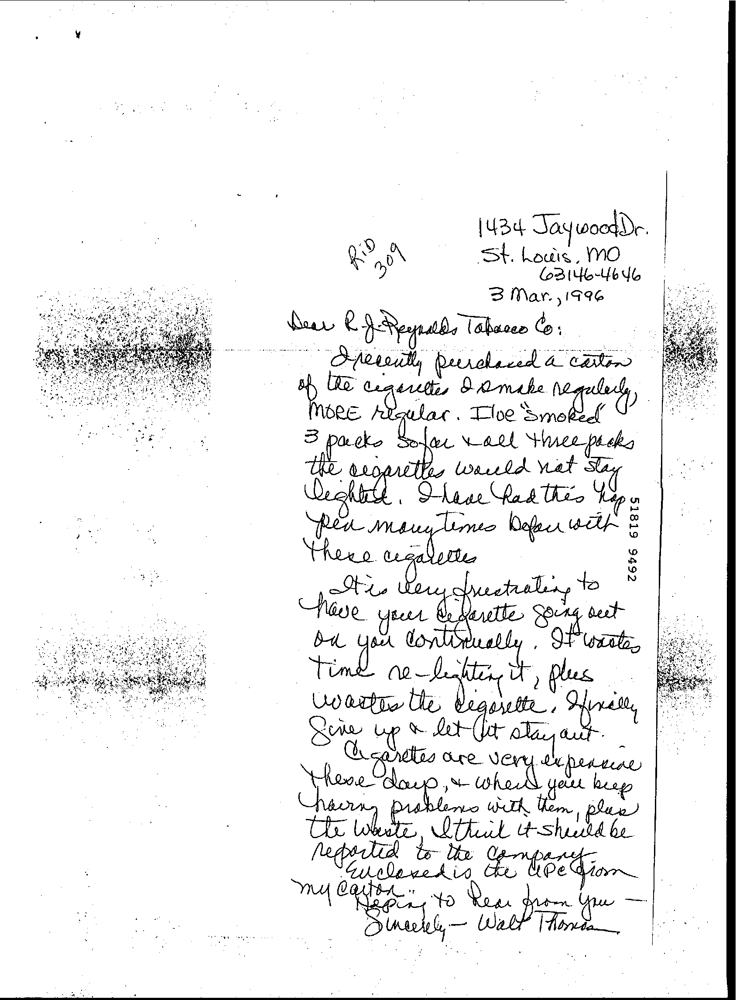 1434 Jaywood Dr.
RiD
309
St. Louis, MO
63146-4646
3 Mar., 1996
Dear R.J. Reynolds Tobacco Co:
I recently purchased a carton
of the cigarettes I smoke regularly,
MORE regular. I've "smoked"
3 packs so far & all three packs
the cigarettes would not stay
lighted. I have had this hap
pen many times before with
these cigarettes
It is very frustrating to
have your cigarette going out
on you continually. It wastes
time re-lighting it, plus
wastes the cigarette. I finally
give up & let it stay out.
Cigarettes are very expensive
these days, & when you keep
having problems with them, plus
the waste, I think it should be
reported to the company.
Enclosed is the UPC from
my carton.
Hoping to hear from you —
Sincerely — Walt Thomas
51819 9492